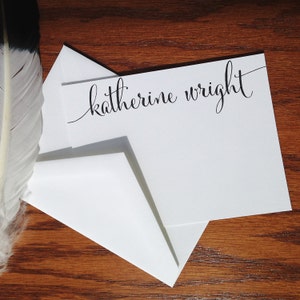 katherine wright